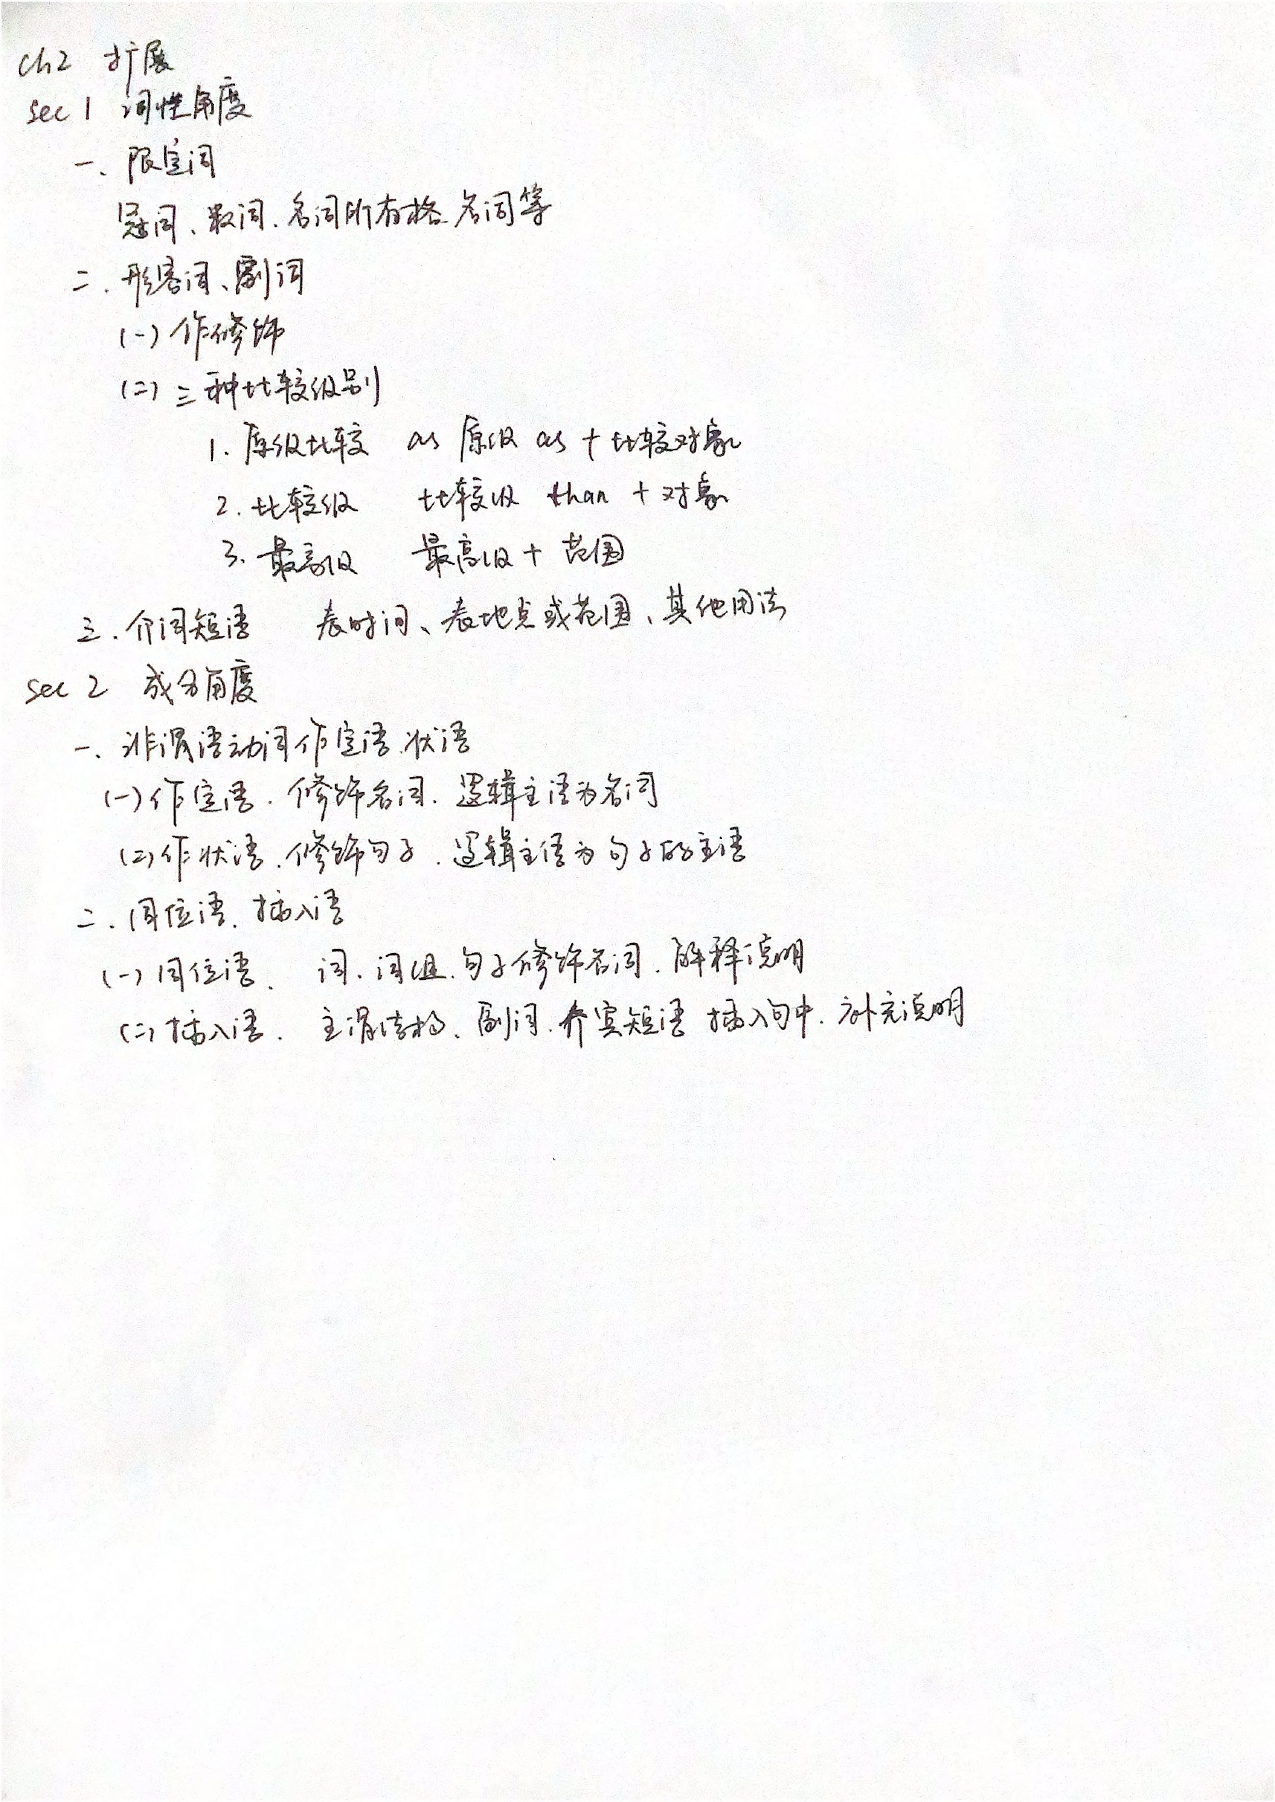 ch2 扩展
sec 1 词性角度
一、限定词
冠词、数词、名词所有格、名词等
二、形容词、副词
(一) 作修饰
(二) 三种比较级别
1. 原级比较 as 原级 as + 比较对象
2. 比较级 比较级 than + 对象
3. 最高级 最高级 + 范围
三、介词短语 表时间、表地点或范围、其他用法
sec 2 成分角度
一、非谓语动词作定语、状语
(一) 作定语、修饰名词、逻辑主语为名词
(二) 作状语、修饰句子、逻辑主语为句子的主语
二、同位语、插入语
(一) 同位语、词、词组、句子修饰名词、解释说明
(二) 插入语、主谓结构、副词、介宾短语 插入句中、补充说明